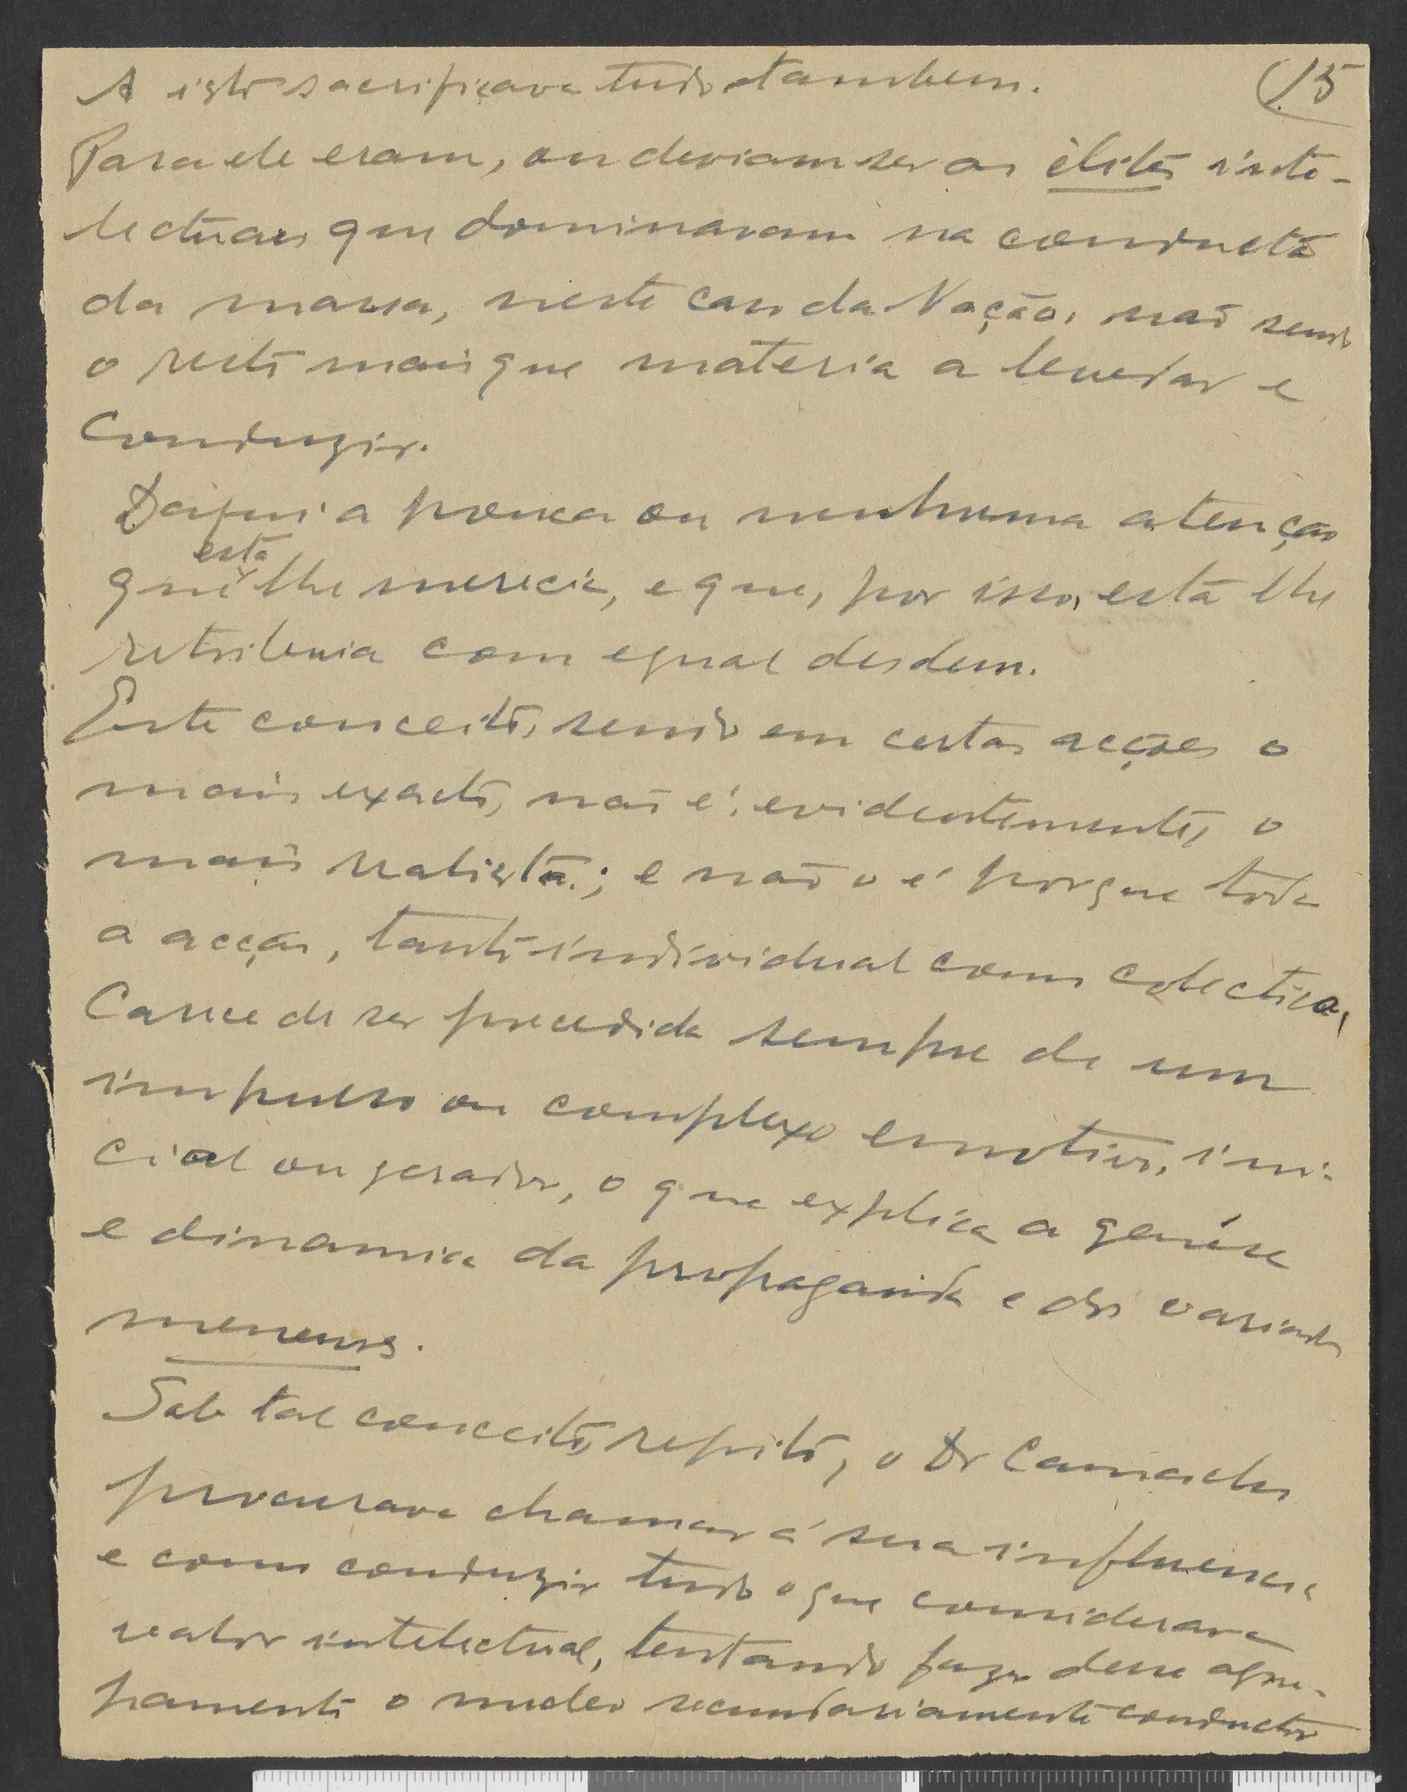 15
A isto sacrificava tudo tambem.
Para ele eram, ou deviam ser as élites inte-
lectuais que dominavam na conducta
da massa, neste caso da Nação, não sendo
o resto mais que materia a levedar e
conduzir.
Daqui a pouca ou nenhuma atenção
que esta lhe merecia, e que, por isso, esta lhe
retribuia com egual desdem.
Este conceito, sendo em certas acções o
mais exacto, não é, evidentemente, o
mais realista; e não o é porque toda
a acção, tanto individual como colectiva,
carece de ser precedida sempre de um
impulso ou complexo emotivo, ini-
cial ou gerador, o que explica a genése
e dinamia da propaganda e dos variados
meneurs.
Sob tal conceito, repito, o Dr Camacho
procurava chamar á sua influencia
e como conduzir tudo o que considerava
valor intelectual, tentando fazer desse agru-
pamento o nucleo secundariamente conductor